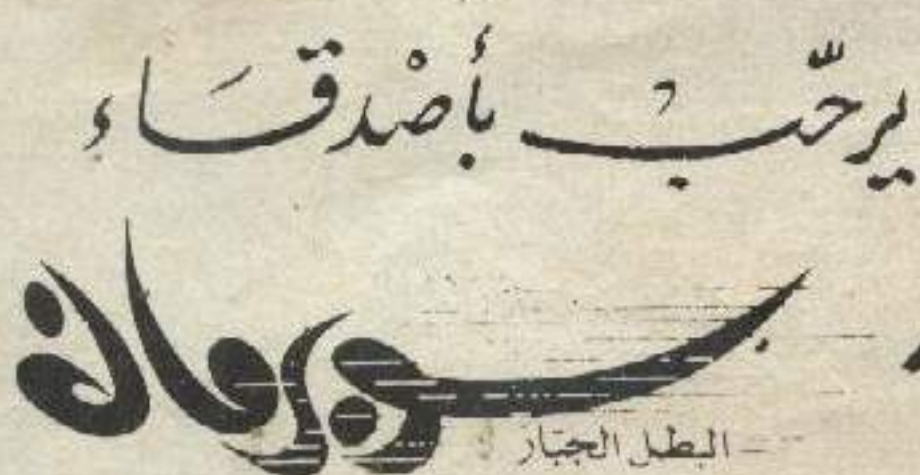 يرحّبْ بأصْدقَاء
سوبرمان
البطل الجبار